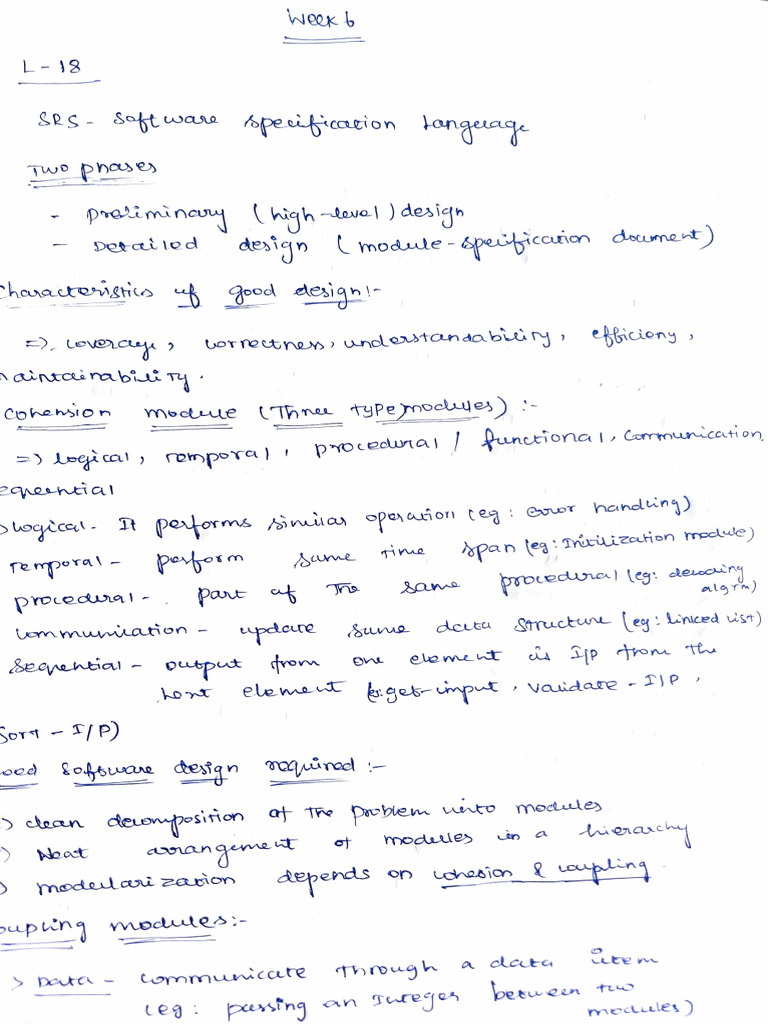 Week 6
L - 18
SRS - Software specification Language
Two phases
- Preliminary (high-level) design
- Detailed design (module-specification document)
Characteristics of good design:-
=> Coverage, correctness, understandability, efficiony,
maintainability.
Cohension module (Three type modules) :-
=> logical, Temporal, procedural / functional, communication,
sequential
logical - It performs similar operation (eg: error handling)
Temporal - perform same time span (eg: Initilization module)
procedural - part of the same procedural (eg: decoding
algrm)
communication - update same data structure (eg: linked list)
Sequential - output from one element is I/p from the
next element eg: get-input, validate - I/P,
Sort - I/P)
Good software design required :-
=> clean decomposition of the problem into modules
=> Neat arrangement of modules in a hierarchy
=> modularization depends on cohesion & coupling
Coupling modules:-
> Data - communicate through a data item
(eg: passing an Integer between two
modules)